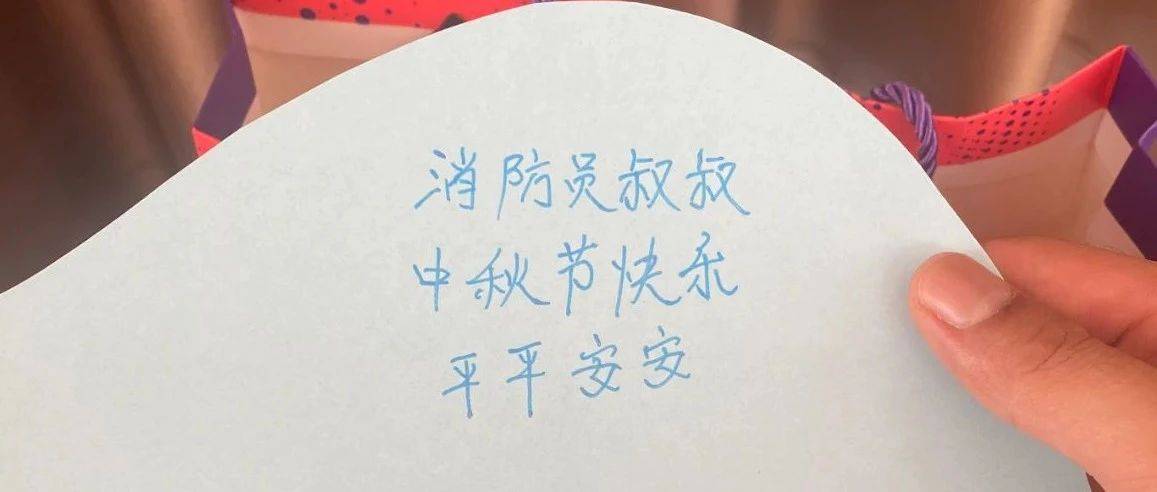 消防员叔叔
中秋节快乐
平平安安